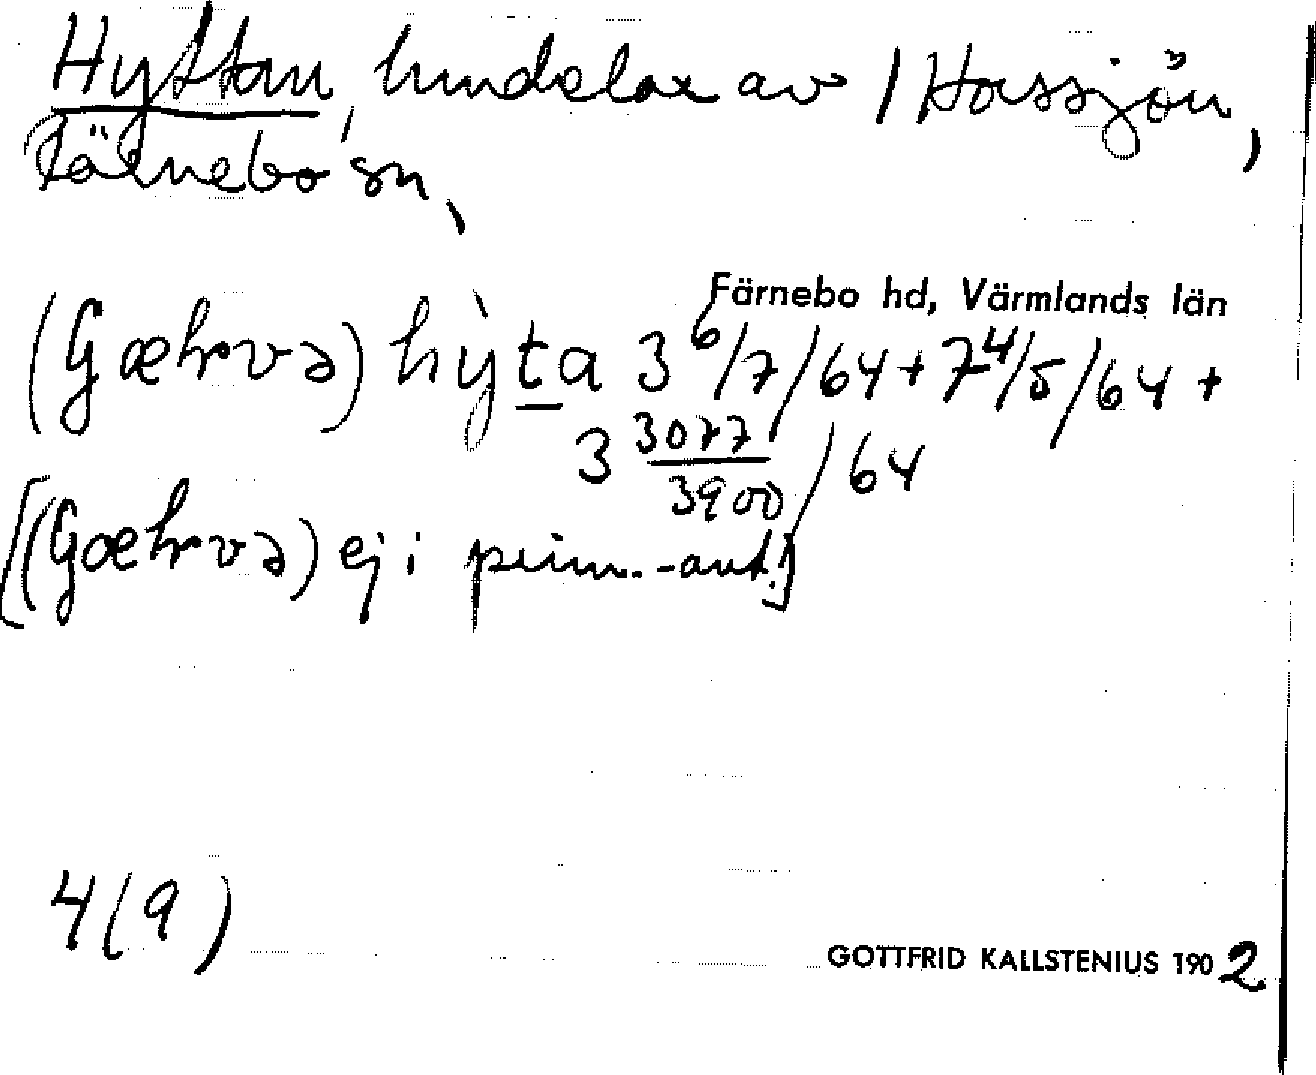 Hyttan, hundelar av 1 Horssjön,
Färnebo sn,
Färnebo hd, Värmlands län
(Gæhrvə) hỳta 3 6/7/64 + 7 4/5/64 +
3 3077/3900/64
[(Gæhrvə) ej i prim.-ant.]
4(9)
GOTTFRID KALLSTENIUS 1902